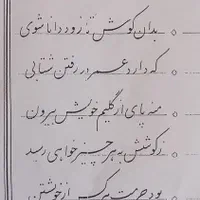 بدان کوش تا زود دانا شوی
که دارد عمر در رفتن شتابی
منه پای از گلیم خویش بیرون
ز کوشش به هر چیز خواهی رسید
بود حرمت هر کس از خویشتن